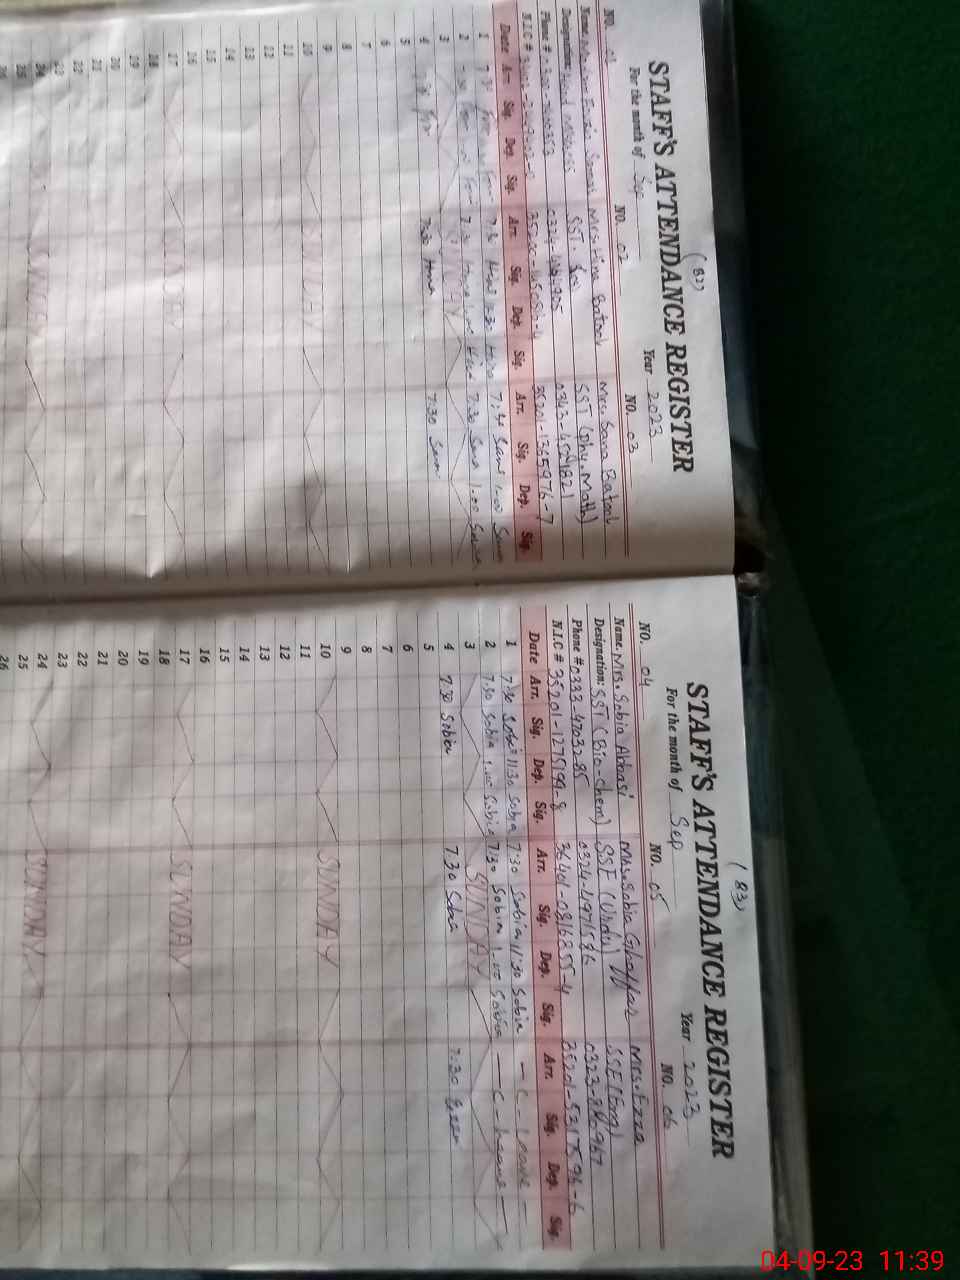 (82)
STAFF'S ATTENDANCE REGISTER
For the month of Sep Year 2023
NO. 01 NO. 02 NO. 03
Name. Mrs. Hina Batool Mrs. Sana Batool
Designation: SST. SST (Phy.Math)
Phone # 0342-4521821
N.I.C # 35201-1365976-7
Date Arr. Sig. Dep. Sig. Arr. Sig. Dep. Sig. Arr. Sig. Dep. Sig.
1 7:30 Hina 11:30 Hina 7:30 Sana
2 7:30 Hina Hina 7:30 Sana 1:00 Sana
3 SUNDAY
4 7:30 Hina 7:30 Sana
5
6
7
8
9
10 SUNDAY
11
12
13
14
15
16
17 SUNDAY
18
19
20
21
22
23
24 SUNDAY
25
26
(83)
STAFF'S ATTENDANCE REGISTER
For the month of Sep Year 2023
NO. 04 NO. 05 NO. 06
Name. Mrs. Sobia Abbasi Mrs. Sobia Ghaffar Mrs. Ezza
Designation: SST (Bio-Chem) SSE (Urdu) SSE (Eng)
Phone # 0333-4703285 0324-4971576
N.I.C # 35201-1275199-8 36401-0816855-4 35201-5317596-6
Date Arr. Sig. Dep. Sig. Arr. Sig. Dep. Sig. Arr. Sig. Dep. Sig.
1 7:30 Sobia 11:30 Sobia 7:30 Sobia 11:30 Sobia — C - Leave —
2 7:30 Sobia 1:00 Sobia 7:30 Sobia 1:00 Sobia — C - Leave —
3 SUNDAY
4 7:30 Sobia 7:30 Sobia 7:30 Ezza
5
6
7
8
9
10 SUNDAY
11
12
13
14
15
16
17 SUNDAY
18
19
20
21
22
23
24 SUNDAY
25
26
04-09-23 11:39